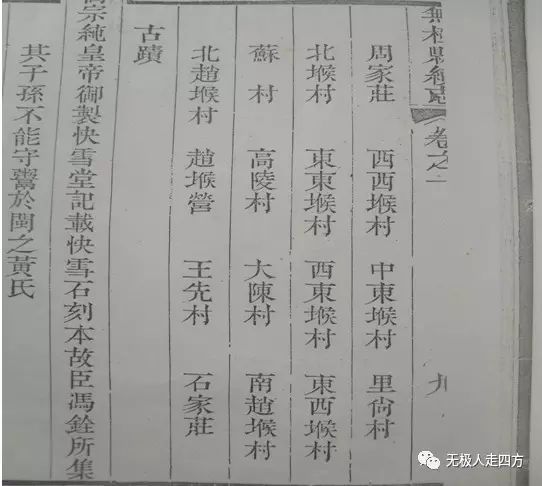 無極縣續志 卷之一 九
周家莊 西西堠村 中東堠村 里尙村
北堠村 東東堠村 西東堠村 東西堠村
蘇村 高陵村 大陳村 南趙堠村
北趙堠村 趙堠營 王先村 石家莊
古蹟
高宗純皇帝御製快雪堂記載快雪石刻本故臣馮銓所集
其子孫不能守鬻於閩之黃氏
无极人走四方